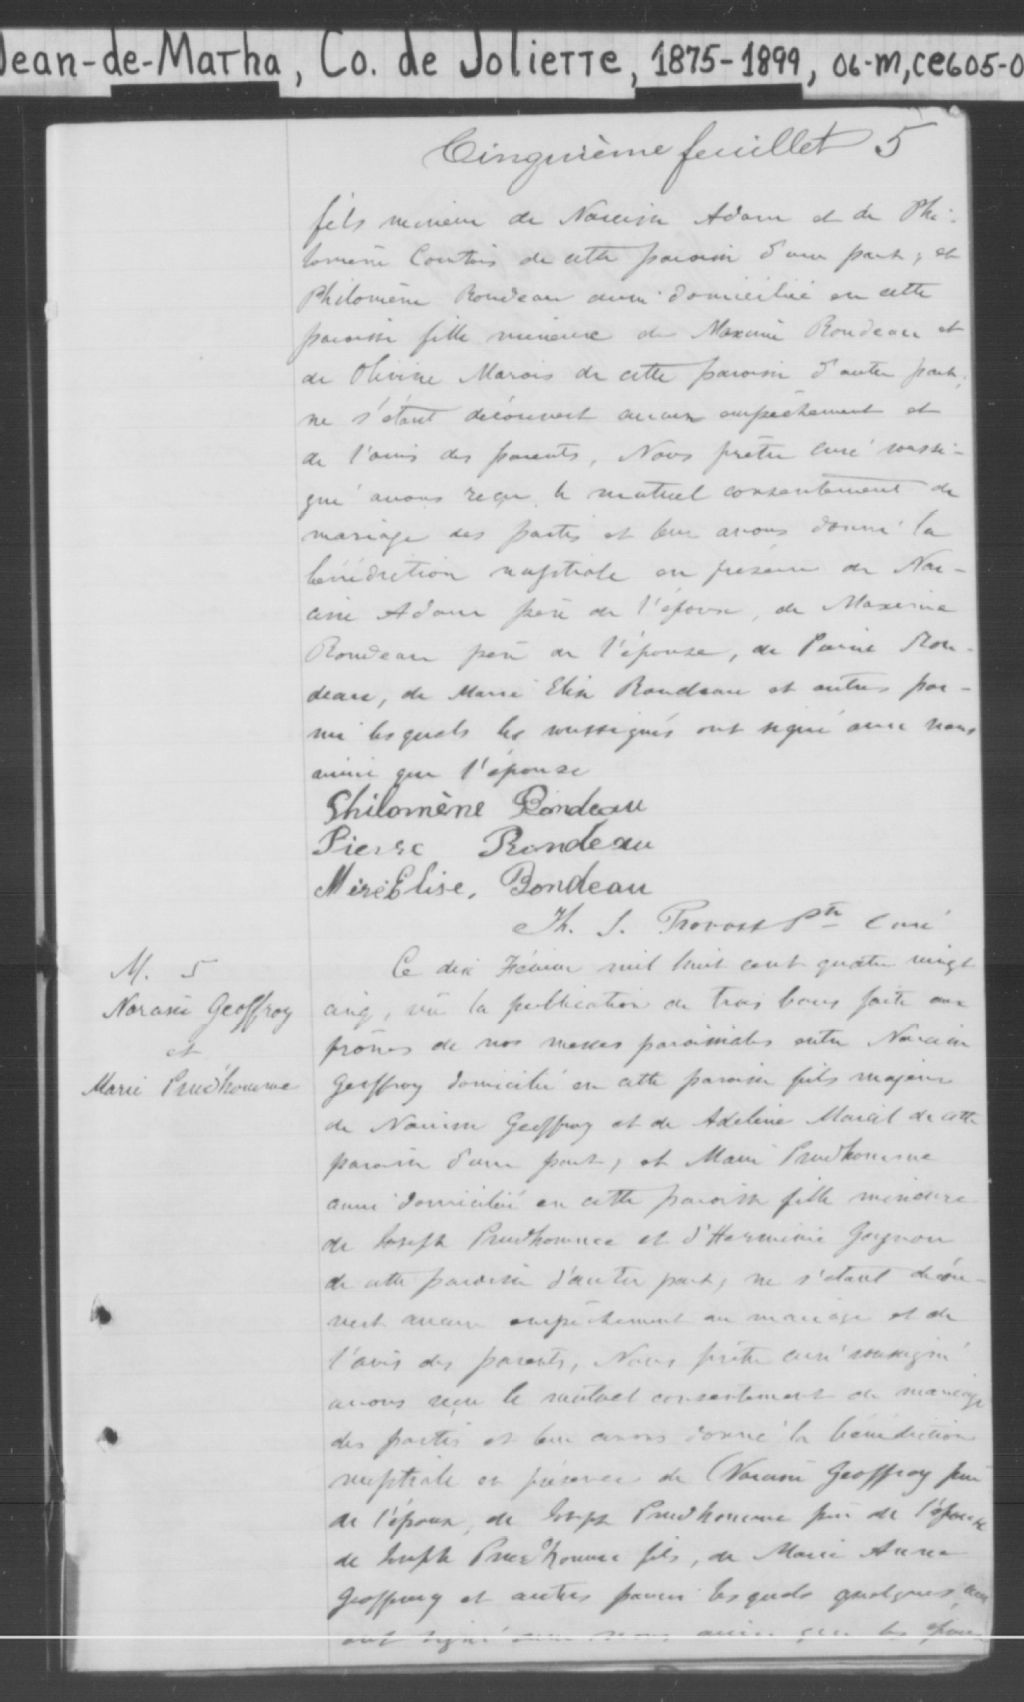 Jean-de-Matha, Co. de Joliette, 1875-1899, 06-M, CE605-0
Cinquième feuillet 5
fils mineur de Narcisse Adam et de Phi-
lomène Courtois de cette paroisse d'une part, et
Philomène Rondeau aussi domiciliée en cette
paroisse fille mineure de Maxime Rondeau et
de Olivine Marois de cette paroisse d'autre part;
ne s'étant découvert aucun empêchement et
de l'avis des parents, Nous prêtre curé soussi-
gné avons reçu le mutuel consentement de
mariage des parties et leur avons donné la
bénédiction nuptiale en présence de Nar-
cisse Adam père de l'époux, de Maxime
Rondeau père de l'épouse, de Pierre Ron-
deau, de Marie Elise Rondeau et autres par-
mi lesquels les soussignés ont signé avec nous
ainsi que l'épouse
Philomène Rondeau
Pierre Rondeau
Mérie Elise. Rondeau
Th. S. Provost Ptre Curé
M. 5
Narcisse Geoffroy
et
Marie Prud'homme
Ce dix Février mil huit cent quatre vingt
cinq, vu la publication de trois bans faite aux
prônes de nos messes paroissiales entre Narcisse
Geoffroy domicilié en cette paroisse fils majeur
de Narcisse Geoffroy et de Adeline Marcil de cette
paroisse d'une part, et Marie Prudhomme
aussi domiciliée en cette paroisse fille mineure
de Joseph Prudhomme et d'Herminie Gagnon
de cette paroisse d'autre part, ne s'étant décou-
vert aucun empêchement au mariage et de
l'avis des parents, Nous prêtre curé soussigné
avons reçu le mutuel consentement de mariage
des parties et leur avons donné la bénédiction
nuptiale en présence de Narcisse Geoffroy père
de l'époux, de Joseph Prudhomme père de l'épouse
de Joseph Prud'homme fils, de Marie Anna
Geoffroy et autres parmi lesquels quelques uns
ont signé avec nous ainsi que les époux